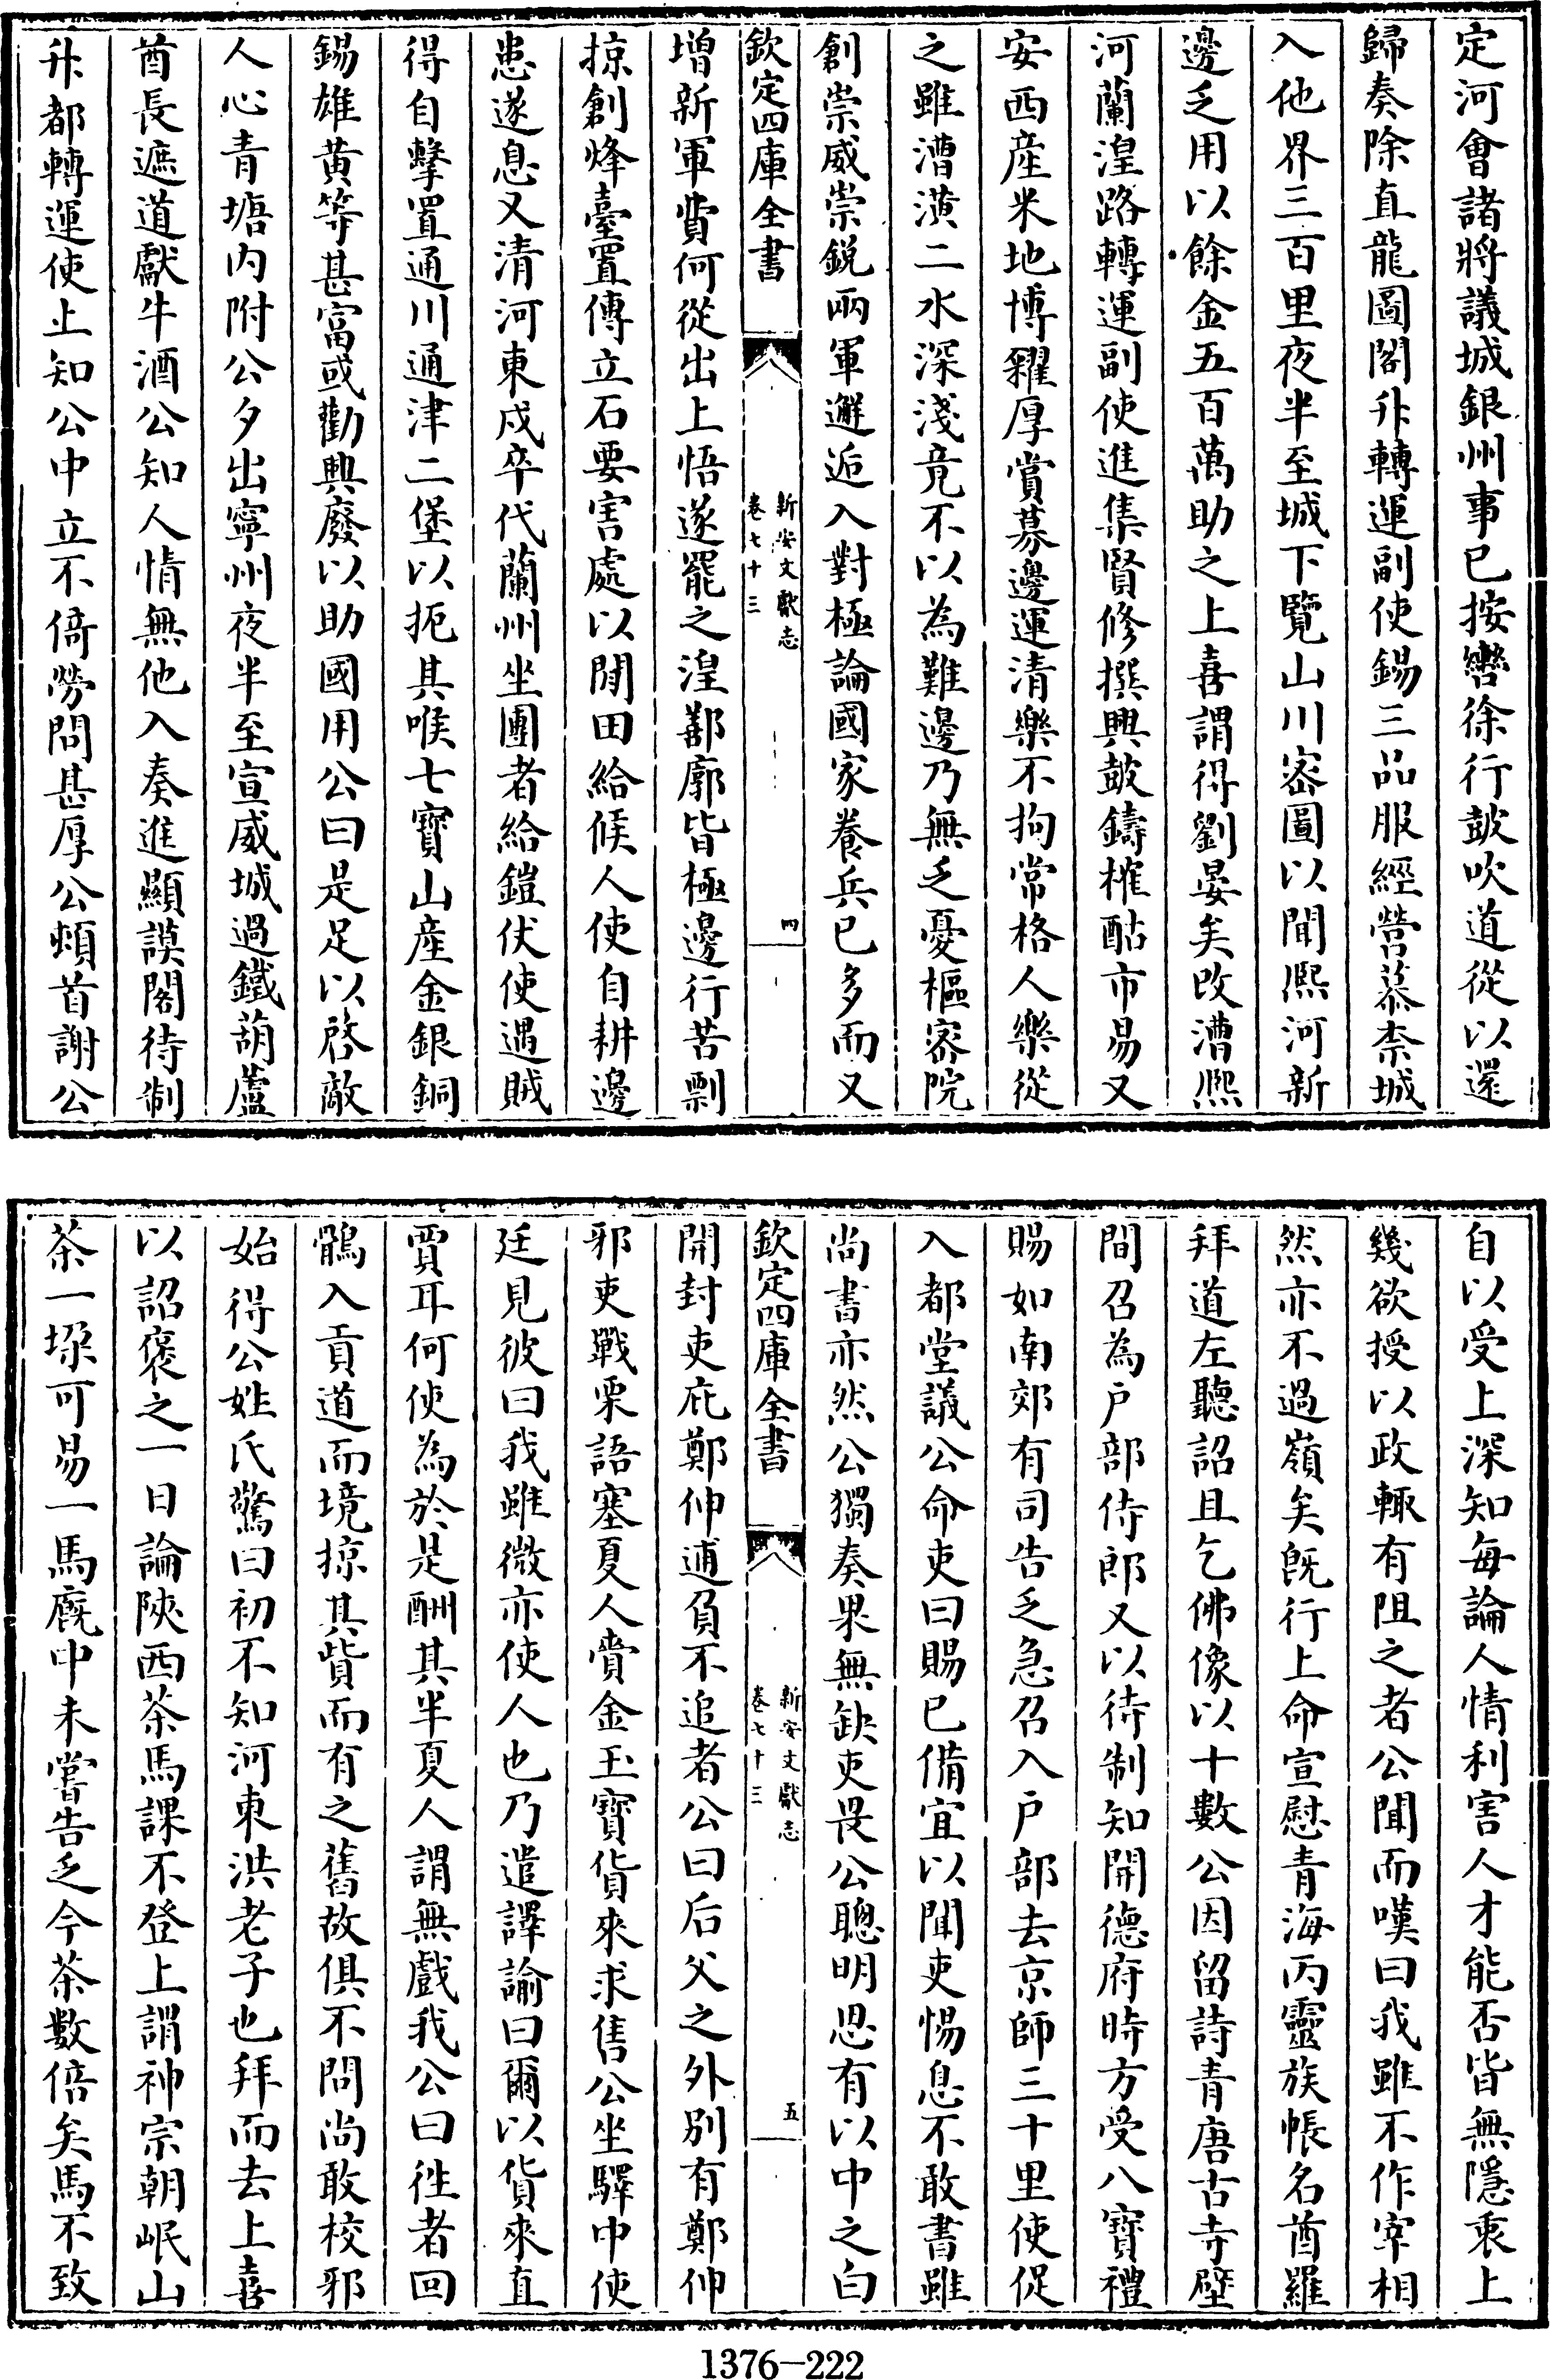 定河會諸將議城銀州事已按轡徐行鼓吹道從以還
歸奏除直龍圖閣升轉運副使錫三品服經營慕柰城
入他界三百里夜半至城下覽山川密圖以聞熈河新
邊乏用以餘金五百萬助之上喜謂得劉晏矣改漕熈
河蘭湟路轉運副使進集賢修撰興鼓鑄榷酤市易又
安西産米地博糴厚賞募邊運清樂不拘常格人樂從
之雖漕潢二水深淺竟不以為難邊乃無乏憂樞密院
創崇威崇鋭兩軍邂逅入對極論國家養兵已多而又
欽定四庫全書
新安文獻志
卷七十三
四
增新軍費何從出上悟遂罷之湟鄯廓皆極邊行苦剽
掠創烽臺置傳立石要害處以閒田給候人使自耕邊
患遂息又清河東戍卒代蘭州坐團者給鎧仗使遇賊
得自擊置通川通津二堡以扼其喉七寳山産金銀銅
錫雄黄等甚富或勸興廢以助國用公曰是足以啓敵
人心青塘内附公夕出寧州夜半至宣威城過鐵葫蘆
酋長遮道獻牛酒公知人情無他入奏進顯謨閣待制
升都轉運使上知公中立不倚勞問甚厚公頓首謝公
自以受上深知每論人情利害人才能否皆無隱衷上
幾欲授以政輙有阻之者公聞而嘆曰我雖不作宰相
然亦不過嶺矣既行上命宣慰青海丙靈族帳名酋羅
拜道左聽詔且乞佛像以十數公因留詩青唐古寺壁
間召為户部侍郎又以待制知開德府時方受八寳禮
賜如南郊有司告乏急召入户部去京師三十里使促
入都堂議公命吏曰賜已備宜以聞吏惕息不敢書雖
尚書亦然公獨奏果無缺吏畏公聰明思有以中之白
欽定四庫全書
新安文獻志
卷七十三
五
開封吏庇鄭仲逋負不追者公曰后父之外别有鄭仲
邪吏戰栗語塞夏人賫金玉寳貨來求售公坐驛中使
廷見彼曰我雖微亦使人也乃遣譯諭曰爾以貨來直
賈耳何使為於是酬其半夏人謂無戲我公曰徃者回
鶻入貢道而境掠其貲而有之舊故俱不問尚敢校邪
始得公姓氏驚曰初不知河東洪老子也拜而去上喜
以詔褒之一日論陜西茶馬課不登上謂神宗朝岷山
茶一垜可易一馬廐中未嘗告乏今茶數倍矣馬不致
1376-222